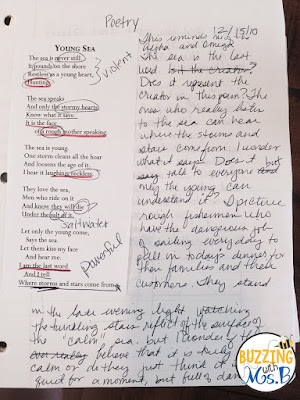 Poetry
12/15/10
YOUNG SEA
The sea is never still.
It pounds on the shore
Restless as a young heart,
Hunting.
violent
The sea speaks
And only the stormy hearts
Know what it says:
It is the face
of a rough mother speaking.
The sea is young.
One storm cleans all the hoar
And loosens the age of it.
I hear it laughing, reckless.
They love the sea,
Men who ride on it
And know they will die
Under the salt of it.
Saltwater
Let only the young come,
Says the sea.
Let them kiss my face
And hear me.
I am the last word
And I tell
Where storms and stars come from.
Powerful
This reminds me
and Omega
The sea is the last
word but the creator?
Does it represent the
creator in this poem? The
ones who really listen
to the sea can hear
where the storms and
stars come from. I wonder
what it says. Does it but
say talk to everyone and
only the young can
understand it? I picture
rough fishermen who
have the dangerous job
of sailing everyday to
pull in today's dinner for
their families and their
customers. They stand
in the late evening light watching
the twinkling stars reflect off the surface of
the "calm" sea, but I wonder if they
believe that it is truly
calm or do they just think it is
quiet for a moment, but full of
BUZZING
with
Ms. B